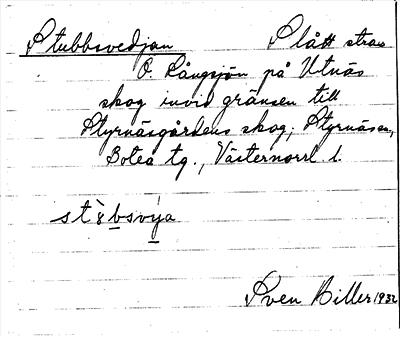 Stubbsvedjan Slått strax
O. Långsjön på Utnäs
skog invid gränsen till
Styrnäsgårdens skog, Styrnäs sn,
Boteå tg., Västernorrl. l.
Sven Biller 1932